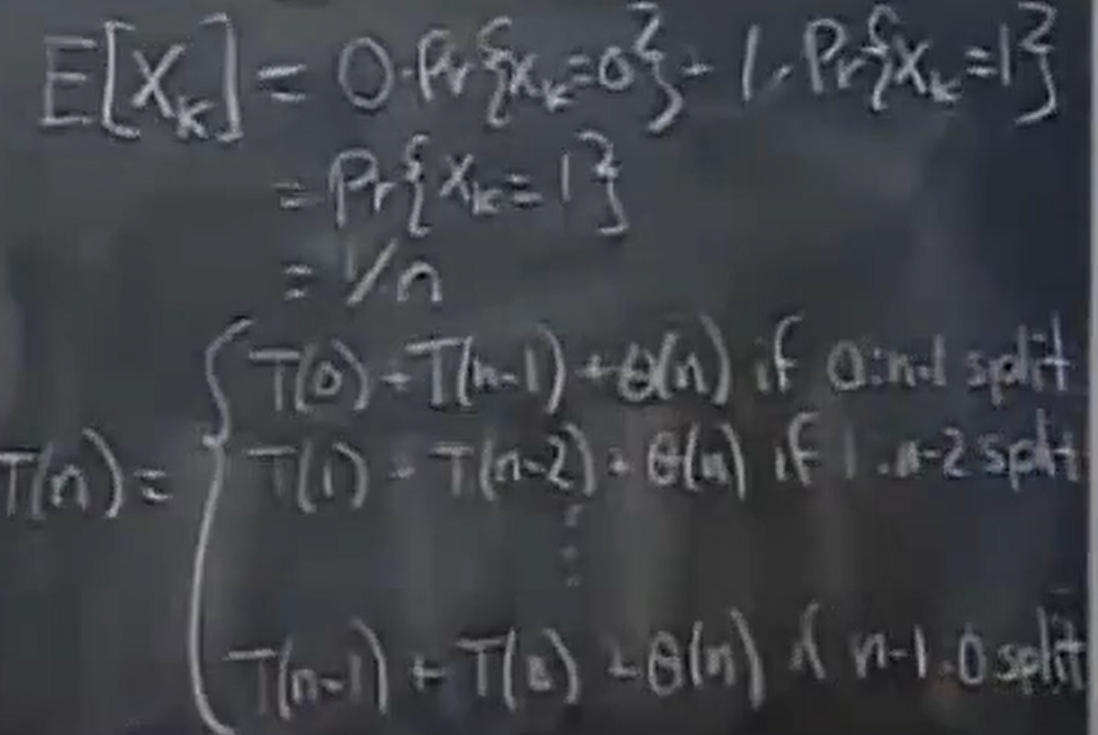 E[X_k] = 0·Pr{X_k=0} + 1·Pr{X_k=1}
= Pr{X_k=1}
= 1/n
T(n) = { T(0) + T(n-1) + Θ(n) if 0:n-1 split
T(1) + T(n-2) + Θ(n) if 1:n-2 split
⋮
T(n-1) + T(0) + Θ(n) if n-1:0 split